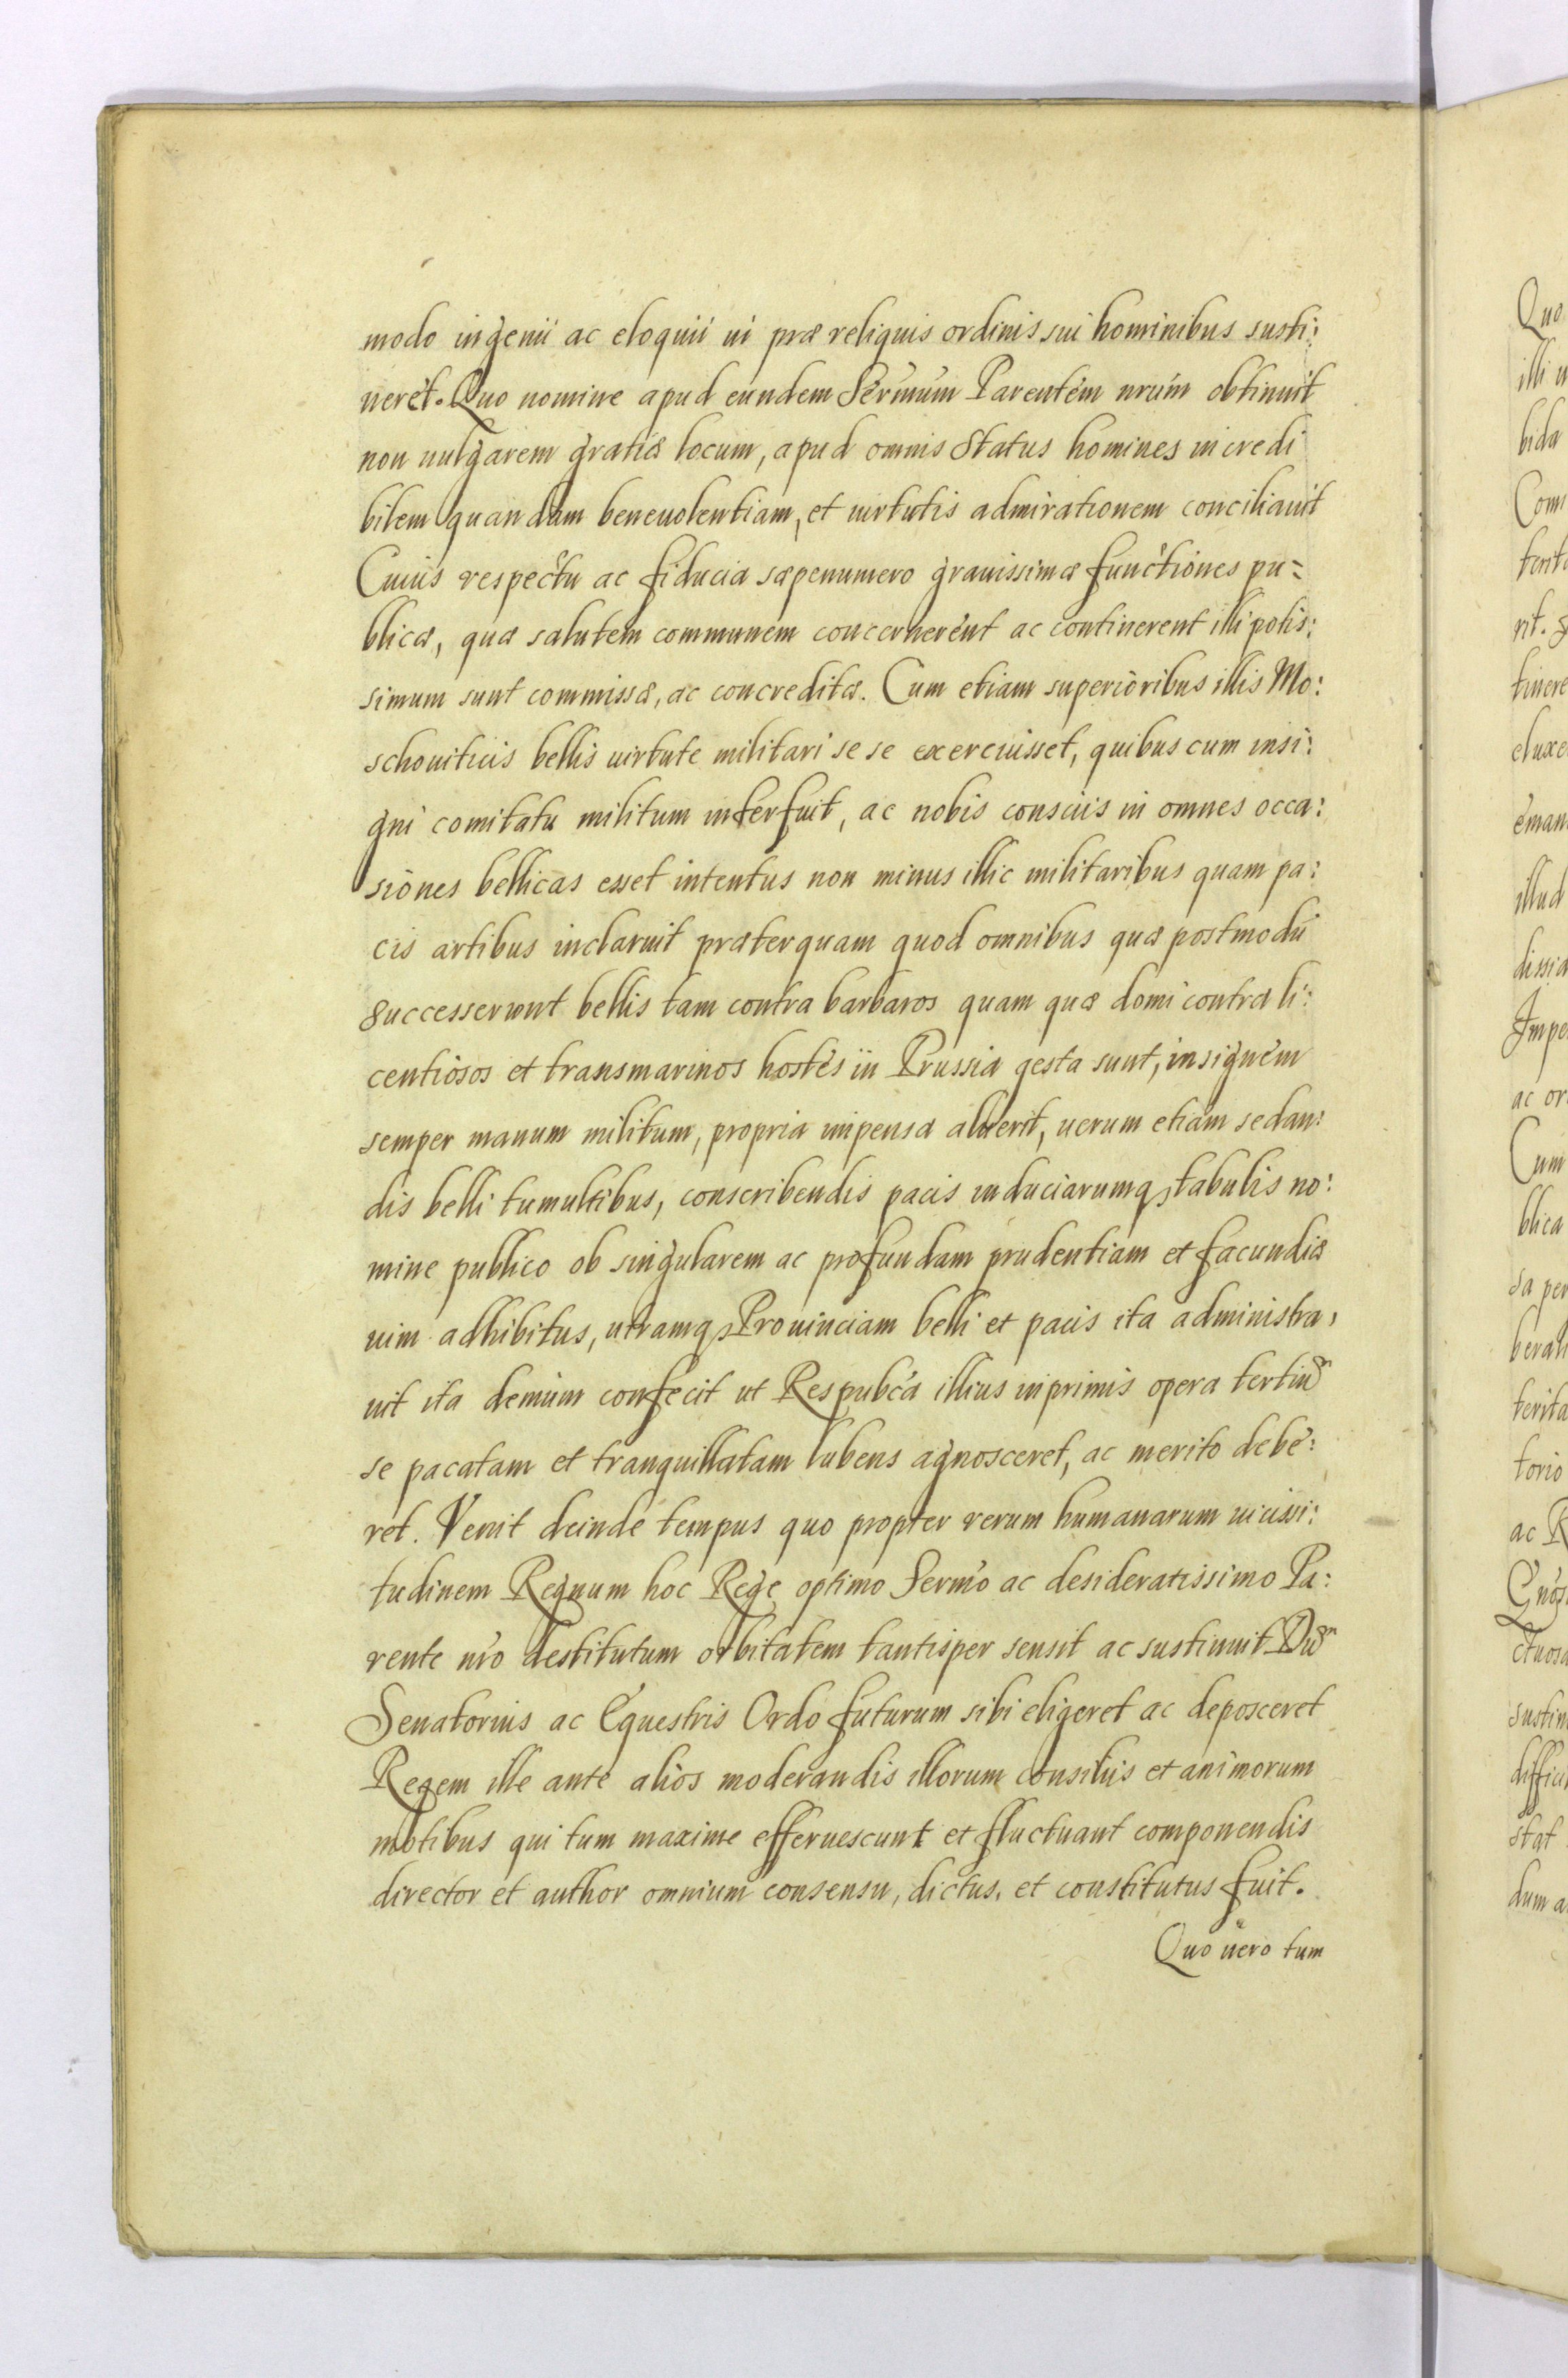 modo ingenii ac eloquii ui præ reliquis ordinis sui hominibus susti:
neret. Quo nomine apud eundem Sermum Parentem nrum obtinuit
non uulgarem gratiæ locum, apud omnis Status homines incredi
bilem quandam beneuolentiam, et uirtutis admirationem conciliauit
Cuius respectu ac fiducia sæpenumero grauissimæ functiones pu=
blicæ, quæ salutem communem concernerent ac continerent illi potis:
simum sunt commissæ, ac concreditæ. Cum etiam superioribus illis Mo:
schouiticis bellis uirtute militari se se exercuisset, quibus cum insi:
gni comitatu militum interfuit, ac nobis consciis in omnes occa:
siones bellicas esset intentus non minus illic militaribus quam pa:
cis artibus inclaruit præterquam quod omnibus quæ postmodū
successerunt bellis tam contra barbaros quam quæ domi contra li:
centiosos et transmarinos hostes in Prussia gesta sunt, insignem
semper manum militum, propria impensa aluerit, uerum etiam sedan:
dis belli tumultibus, conscribendis pacis induciarumq, tabulis no:
mine publico ob singularem ac profundam prudentiam et facundiæ
uim adhibitus, utramq, Prouinciam belli et pacis ita administra,
uit ita demum confecit ut Respubca illius inprimis opera tertiū
se pacatam et tranquillatam lubens agnosceret, ac merito debe:
ret. Venit deinde tempus quo propter rerum humanarum uicissi:
tudinem Regnum hoc Rege optimo Sermo ac desideratissimo Pa:
rente nro destitutum orbitatem tantisper sensit ac sustinuit Dū
Senatorius ac Equestris Ordo futurum sibi eligeret ac deposceret
Regem ille ante alios moderandis illorum consiliis et animorum
motibus qui tum maxime efferuescunt et fluctuant componendis
director et author omnium consensu, dictus, et constitutus fuit.
Quo uero tum